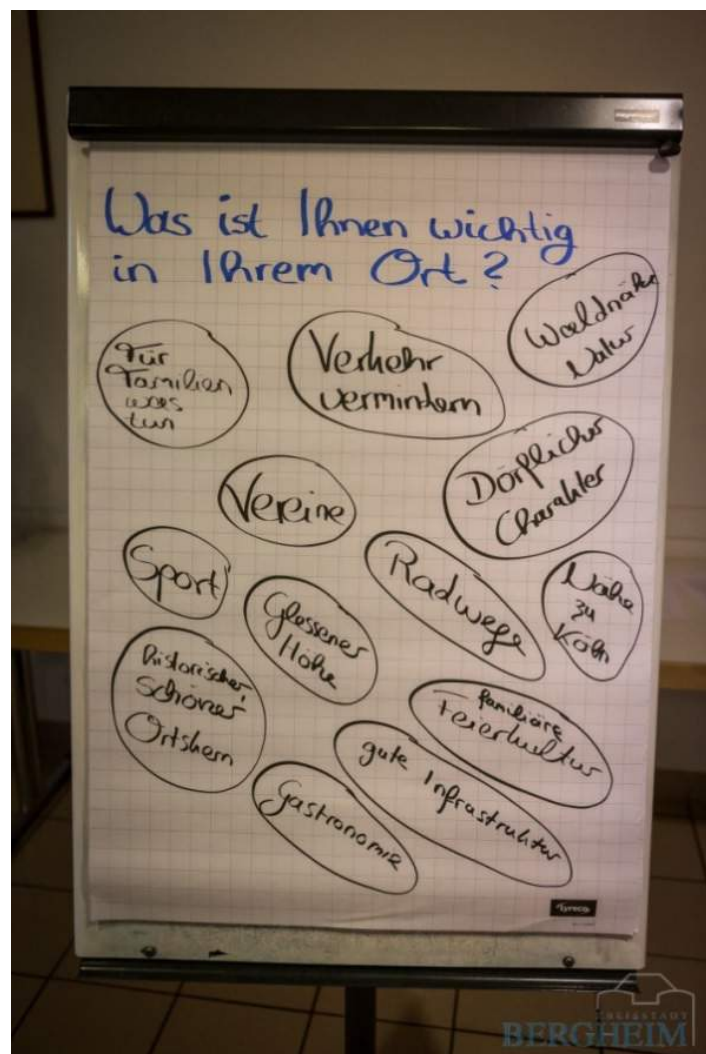 Was ist Ihnen wichtig
in Ihrem Ort?
Waldnähe
Natur
Für
Familien
was
tun
Verkehr
vermindern
Dörflicher
Charakter
Vereine
Sport
Radwege
Nähe
zu
Köln
Glessener
Höhe
historischer,
schöner
Ortskern
familiäre
Feierkultur
gute Infrastruktur
Gastronomie
KREISSTADT
BERGHEIM